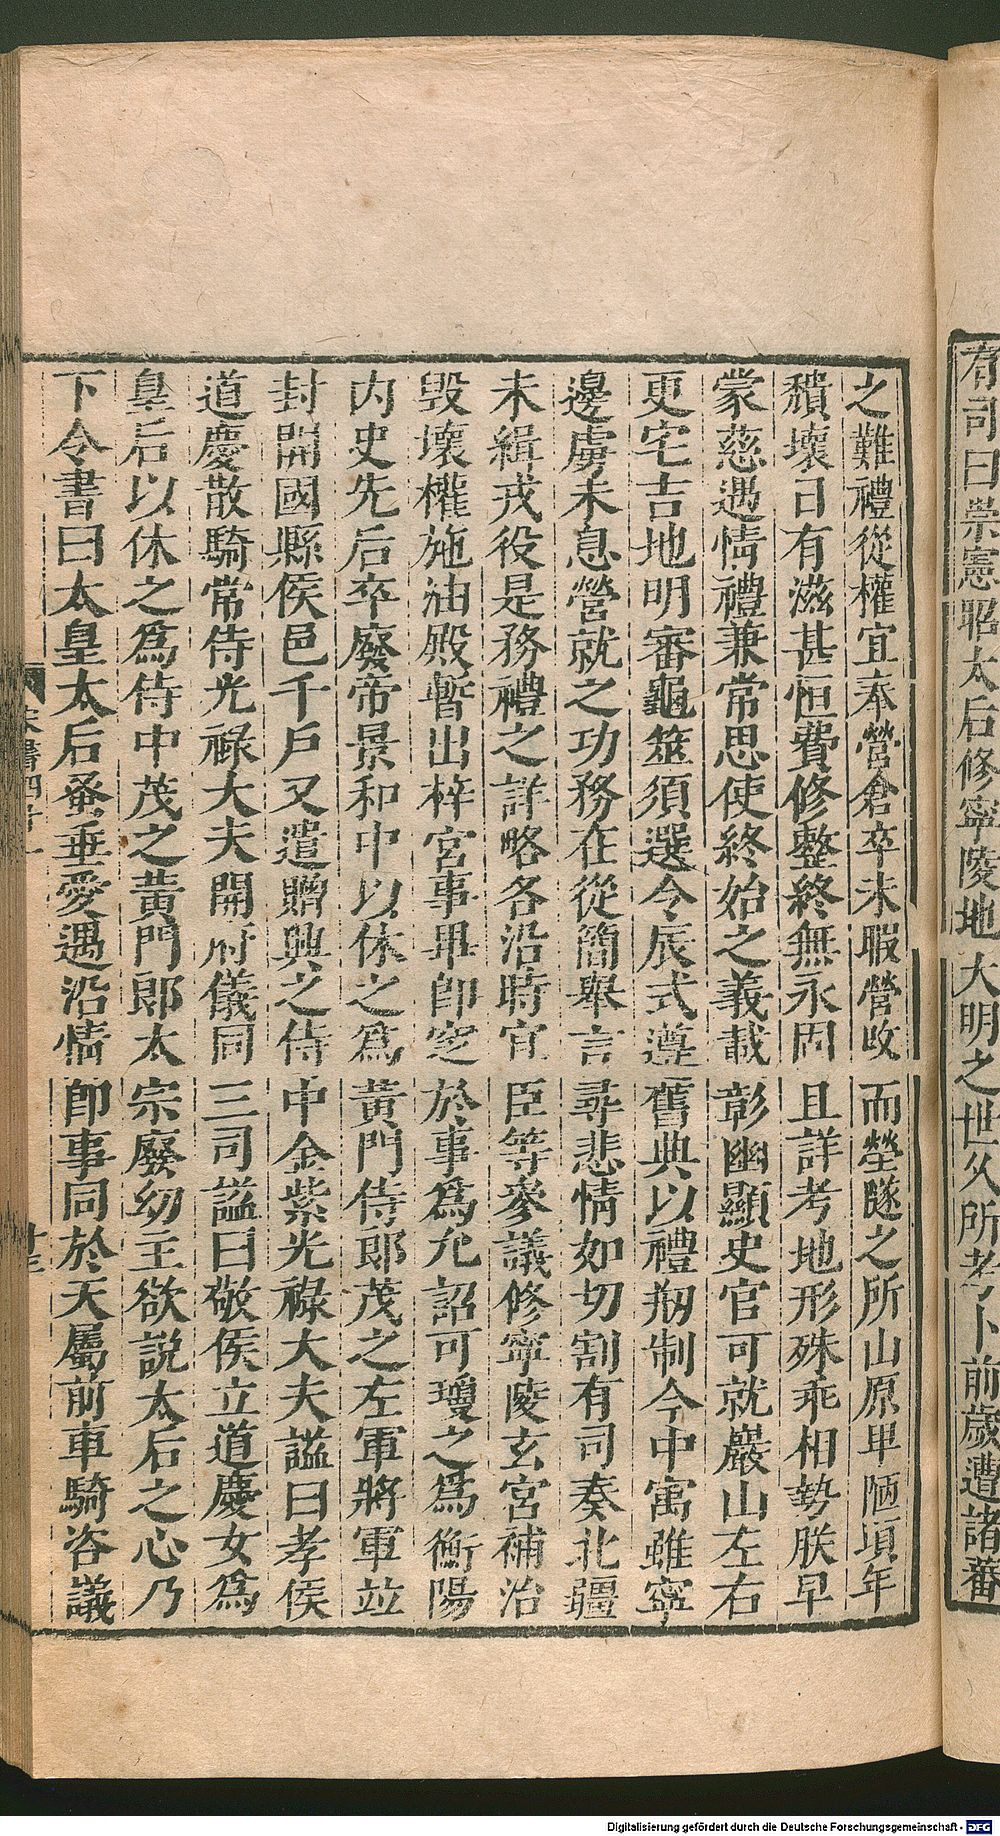 有司曰崇憲昭太后修寧陵地大明之世久所考卜前歲遭諸蕃
之難禮從權宜奉營倉卒未暇營改而塋隧之所山原卑陋頃年
穨壞日有滋甚恒費修整終無永固且詳考地形殊乖相勢朕早
蒙慈遇情禮兼常思使終始之義載彰幽顯史官可就巖山左右
更宅吉地明審龜筮須選令辰式遵舊典以禮剏制今中寓雖寧
邊虜未息營就之功務在從簡舉言尋悲情如切割有司奏北疆
未緝戎役是務禮之詳略各沿時宜臣等參議修寧陵玄宮補治
毀壞權施油殿暫出梓宮事畢即窆於事爲允詔可瓊之爲衡陽
内史先后卒廢帝景和中以休之爲黃門侍郎茂之左軍將軍竝
封開國縣侯邑千戶又遣贈興之侍中金紫光祿大夫謚曰孝侯
道慶散騎常侍光祿大夫開府儀同三司謚曰敬侯立道慶女爲
皇后以休之爲侍中茂之黃門郎太宗廢幼主欲說太后之心乃
下令書曰太皇太后蚤垂愛遇沿情即事同於天屬前車騎咨議
宋書四十一
十三
Digitalisierung gefördert durch die Deutsche Forschungsgemeinschaft - DFG